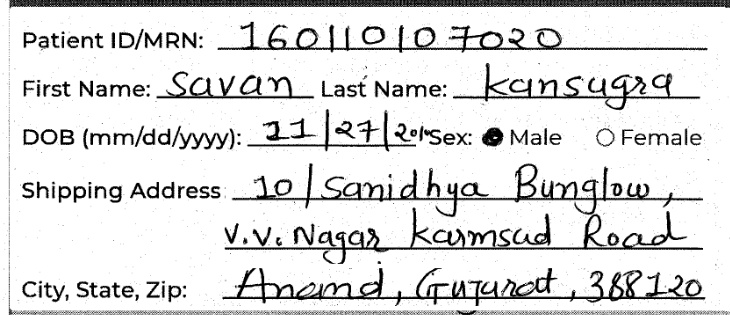 Patient ID/MRN: 160110107020
First Name: Savan Last Name: kansagra
DOB (mm/dd/yyyy): 11/27/ Sex: Male Female
Shipping Address 10/Sanidhya Bunglow,
V.V. Nagar Karmsad Road
City, State, Zip: Anand, Gujarat, 388120